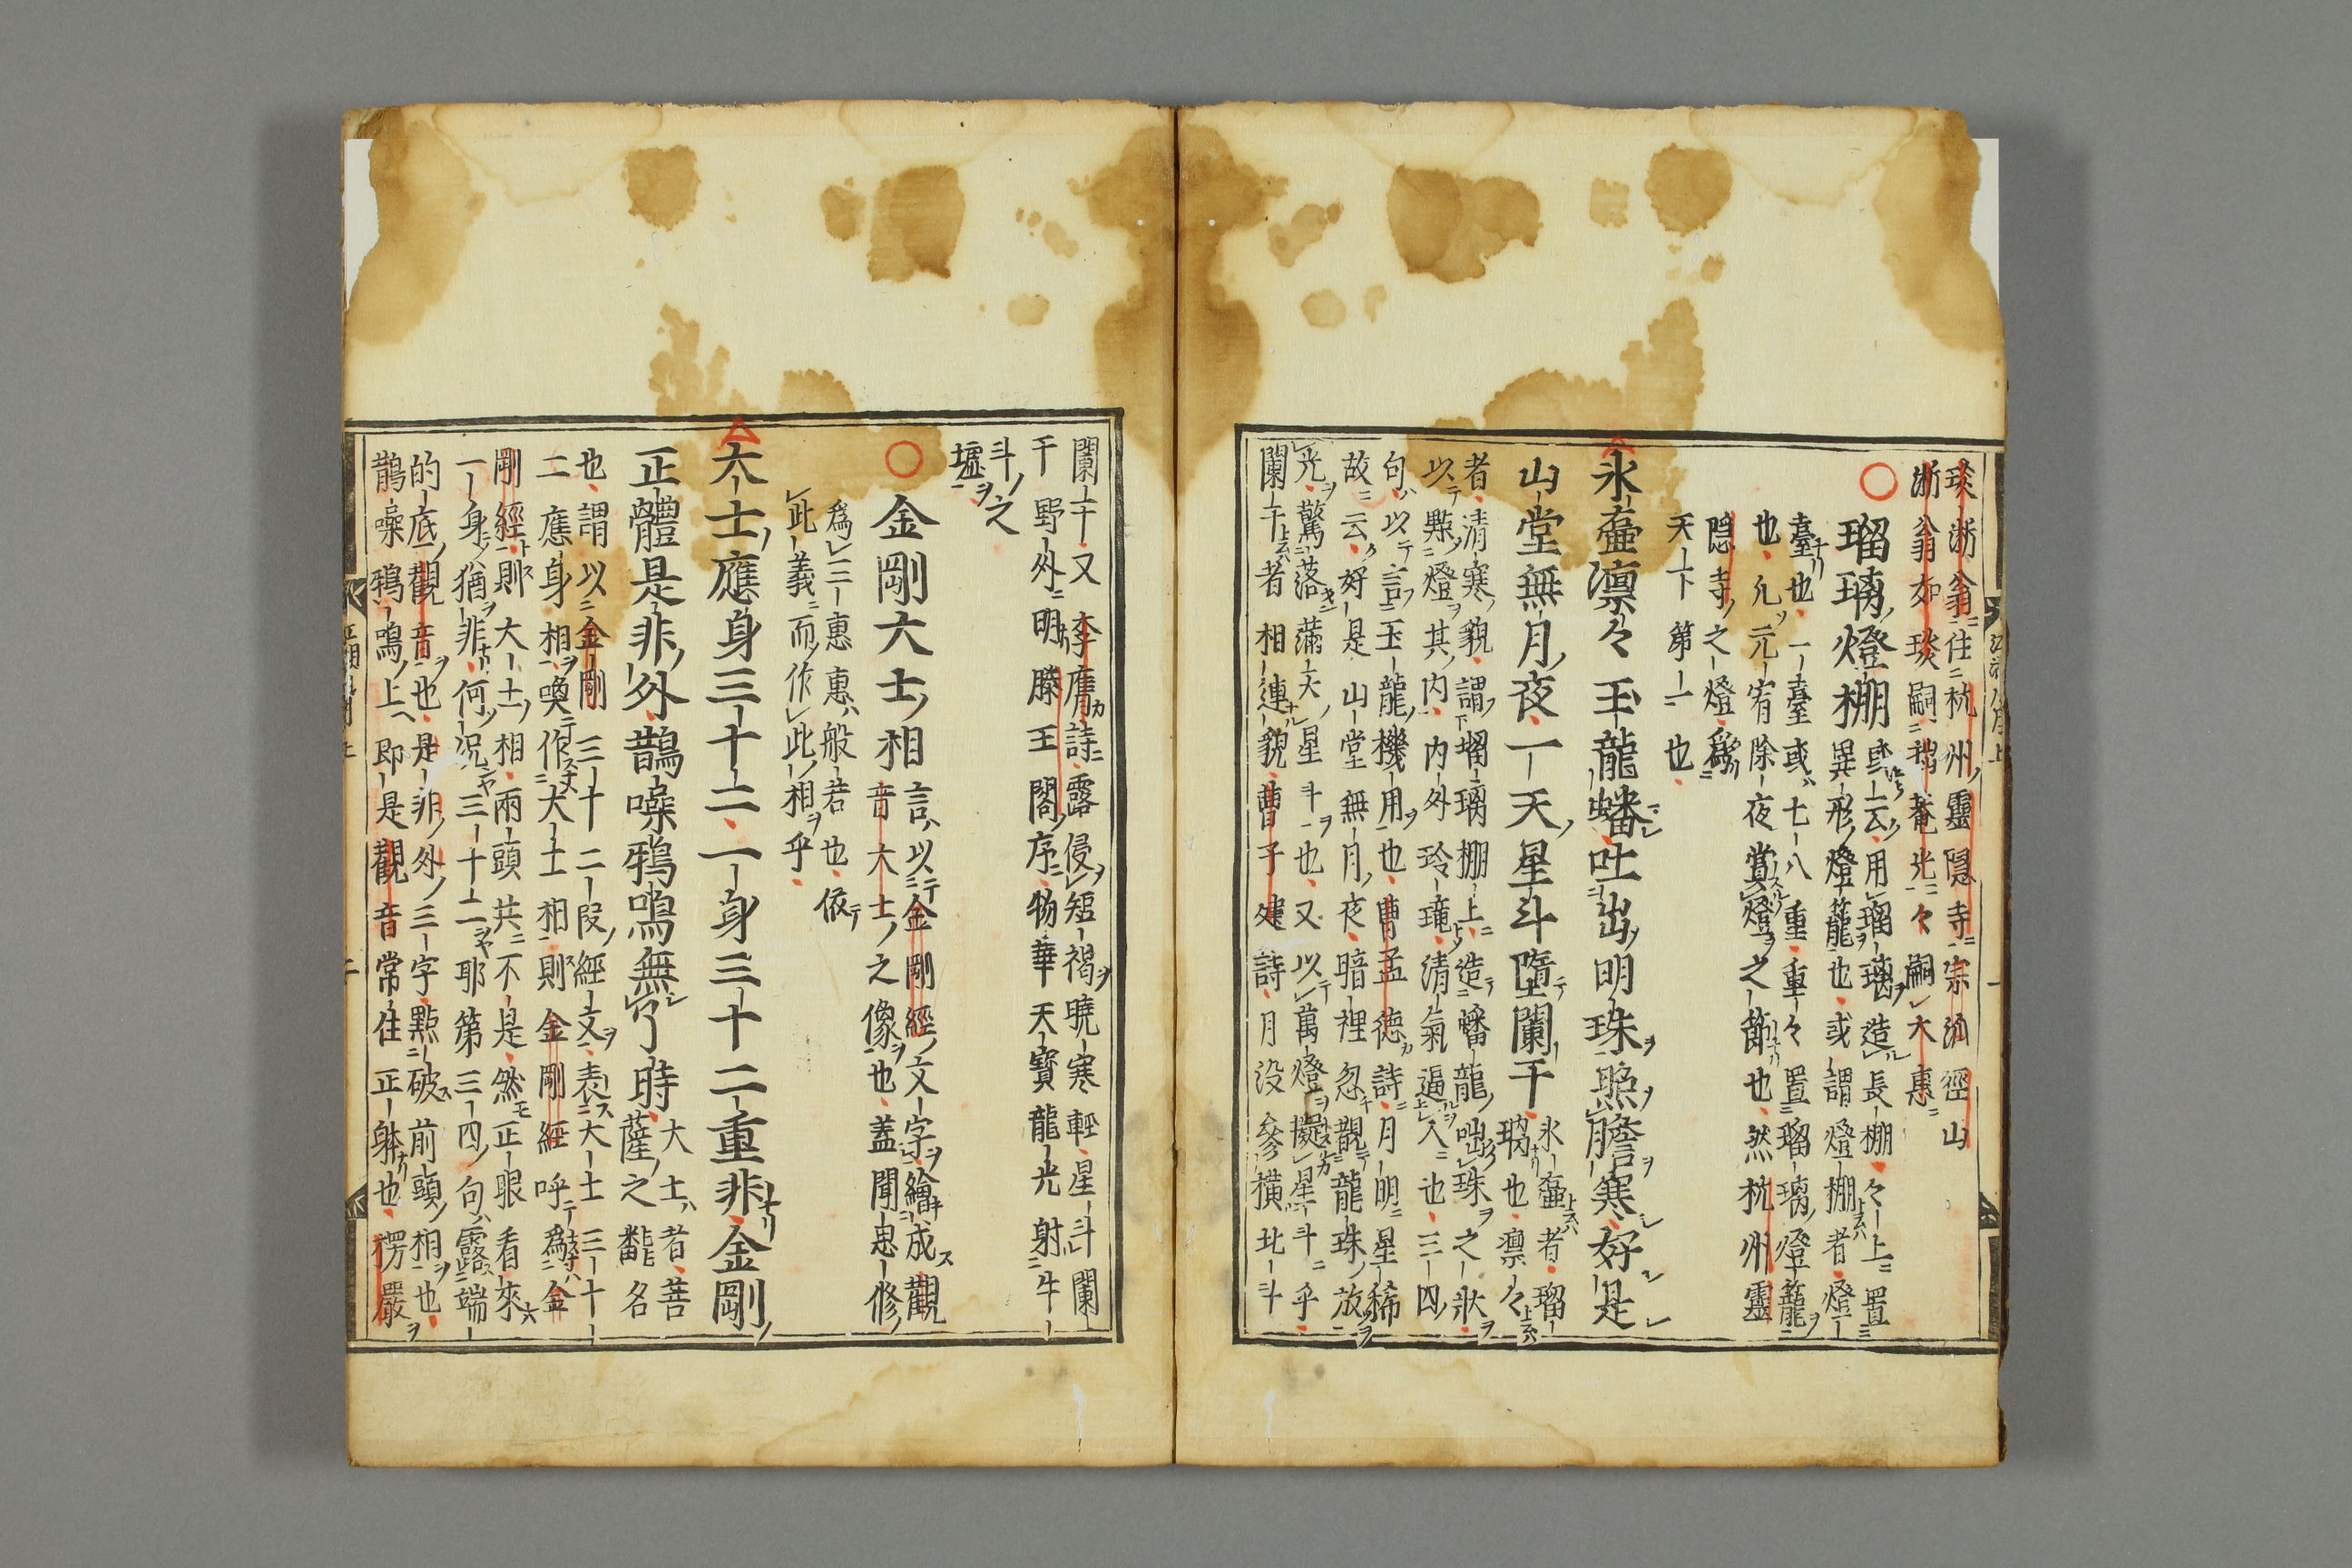 琰浙翁住杭州靈隱寺宗派徑山
浙翁如琰嗣拙菴光々嗣大惠
瑠璃燈棚或云用瑠璃造長棚々上置
異形燈籠也或謂燈棚者燈
臺也一臺或七八重重々置瑠璃燈籠
也凡元宵除夜賞燈之節也然杭州靈
隠寺之燈爲
天下第一也
氷壷凛々玉龍蟠吐出明珠照膽寒好是
山堂無月夜一天星斗墮闌干
氷壷者瑠
璃也凛々
者清寒貌謂瑠璃棚上造蟠龍咄珠之狀
以㸃燈其内内外玲瓏清氣逼人也三四
句以言玉龍機用也曹孟德詩月明星稀
故云好是山堂無月夜暗裡忽覩龍珠放
光驚落滿天星斗也又以萬燈擬星斗乎
闌干者相連貌曹子建詩月没參横北斗
闌干又李廌詩露侵短褐曉寒輕星斗闌
干野外明滕王閣序物華天寶龍光射牛
斗之
墟
金剛大士相
言以金剛經文字繪成觀
音大士之像也蓋聞思修
爲三惠惠般若也依
此義而作此相乎
大士應身三十二一身三十二重非金剛
正體是非外鵲噪鴉鳴無了時
大士者菩
薩之飜名
也謂以金剛三十二段經文表大士三十
二應身相喚作大士相則金剛經呼爲金
剛經則大士相兩頭共不是然正眼看來
一身猶非何况三十二耶第三四句露端
的底觀音也是非外三字㸃破前頭相也
鵲噪鴉鳴上即是觀音常住正躰也楞嚴